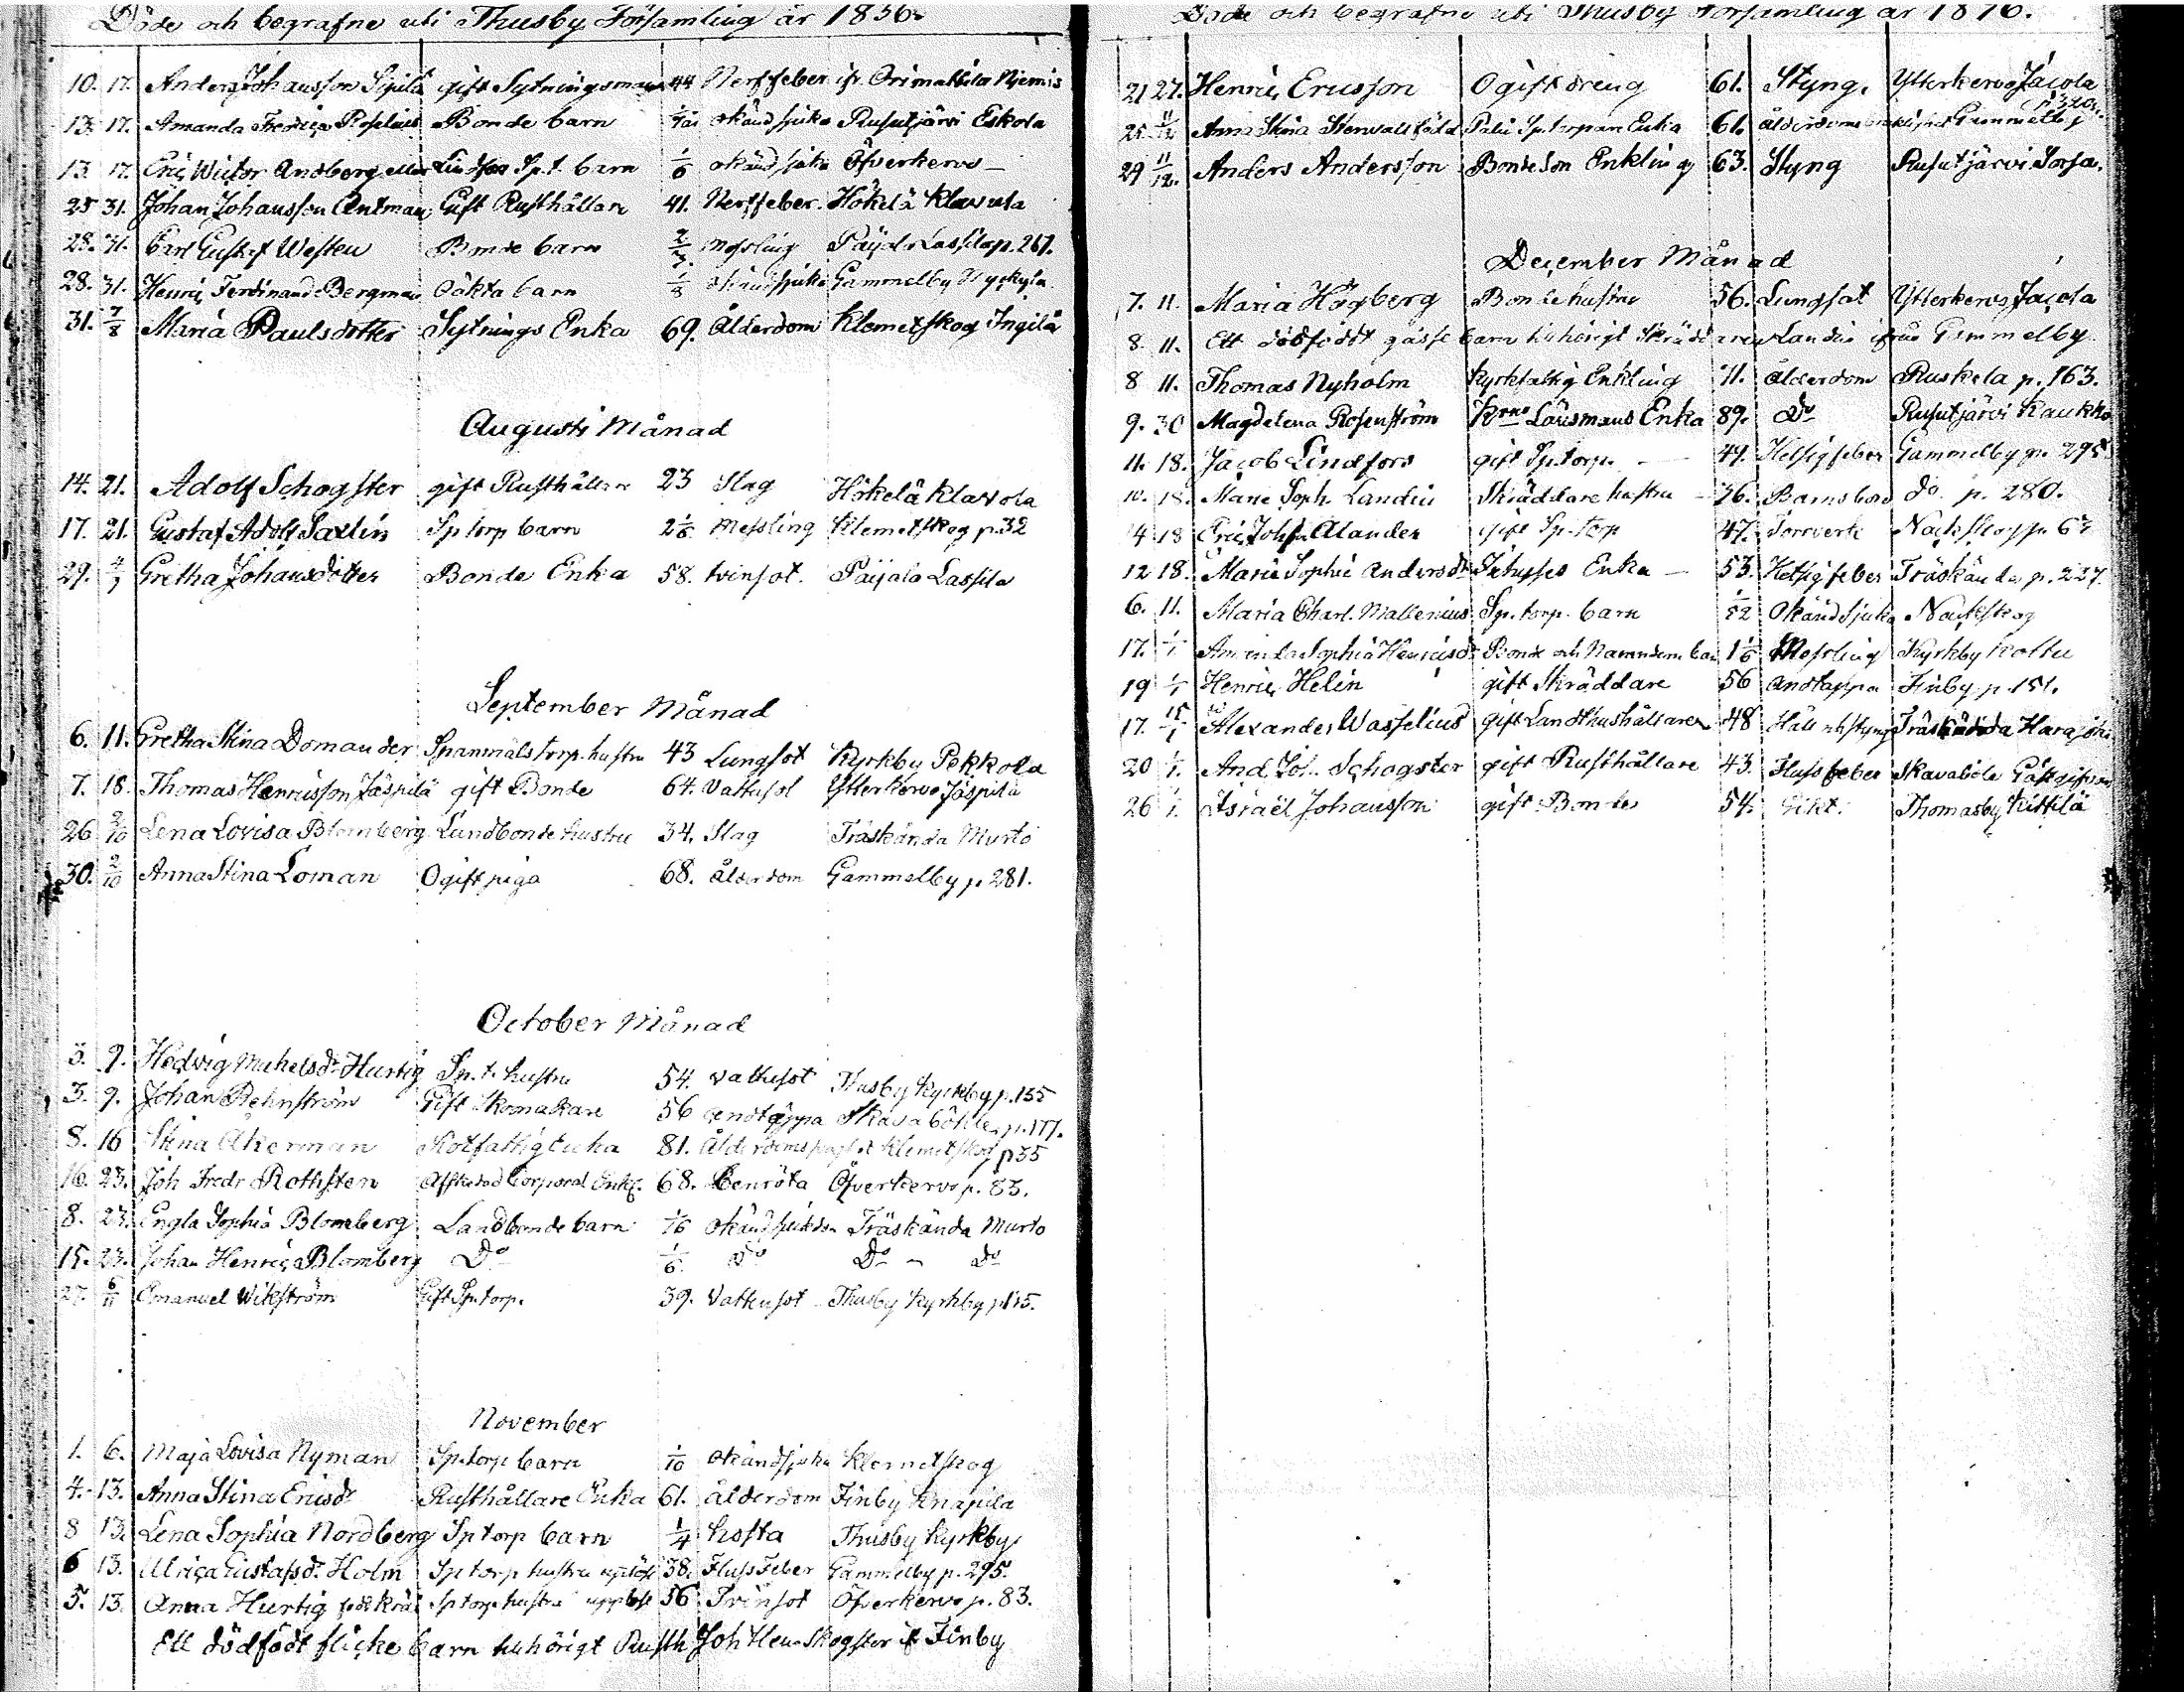 Döde och begrafne uti Thusby Församling år 1836.
10. 17. Anders Johansson Sipilä gift Sytningsman 44 Nerffeber ifr. Orimattila Niemis
13. 17. Amanda Fredrica Roselius Bonde barn okänd sjuka Rusutjärvi Eskola
13 17. Eric Wictor Andberg eller Lindfors Sp.t. barn 1/6 okänd sjuka Öfverkervo
25 31. Johan Johansson Antman Gift Rusthållare 41. Nerffeber. Hökelä Klavola
28. 31. Carl Gustaf Westen Bonde barn 2/3 Messling Paijala Lassila p. 267.
28. 31. Henric Ferdinand Bergman Oäkta barn 1/8 okänd sjuka Gammelby
31. 7/8 Maria Paulsdotter Sytnings Enka 69. Ålderdom Klemetskog Ingilä
Augusti Månad
14. 21. Adolf Schogster gift Rusthållare 23 Slag Hökelä Klavola
17. 21. Gustaf Adolf Saxlin Sp torp barn 2 1/6 Messling Klemetskog p. 32
29. 4/9 Gretha Johansdotter Bonde Enka 58. tvinsot. Paijala Lassila
September Månad
6. 11. Gretha Stina Domander Spanmåls torp. hustru 43 Lungsot Kyrkby Pekkola
7. 18. Thomas Henricsson Jäspilä gift Bonde 64. Vattusot Ytterkervo Jäspilä
26 2/10 Lena Lovisa Blomberg Landbonde hustru 34. Slag Träskända Murto
30. 2/10 Anna Stina Loman Ogift piga 68. Ålderdom Gammelby p. 281.
October Månad
3. 9. Hedvig Michelsdr Hurtig Sp. t. hustru 54. Vattusot Thusby Kyrkby p. 155
3. 9. Johan Rehnström Gift Skomakare 56 andtäppa Skavaböhle p. 177.
8. 16 Stina Åkerman Rotfattig Enka 81. Klemetskog p 35
16. 23. Joh Fredr Rothsten Afskedad Corporal Enkl. 68. Benröta Öfverkervo p. 83.
8. 23. Engla Sophia Blomberg Landbonde barn 1/16 Träskända Murto
15. 23. Johan Henric Blomberg Do 1/6 Do Do Do
27. 6/11 Emanuel Wikström Gift Sp. torp. 39. Vattusot Thusby Kyrkby
November
1. 6. Maja Lovisa Nyman Sp. torp barn 1/10 okänd sjuka Klemetskog
4. 13. Anna Stina Ericsdr Rusthållare Enka 61. Ålderdom Finby Knapila
8 13. Lena Sophia Nordberg Sp torp barn 1/4 hosta Thusby Kyrkby
6 13. Ulrica Gustafsdr Holm Sp torp hustru 38. Fluss Feber Gammelby p. 295.
5. 13. Anna Hurtig Sp torp hustru 56 Tvinsot Öfverkervo p. 83.
Ett dödfödt flicke barn tillhörigt Rusth Joh Hen Skogster if Finby
Döde och begrafne uti Thusby Församling år 1836.
21 27. Henric Ericsson Ogift dreng 61. Styng. Ytterkervo Jäcola
25. 11/12 Anna Stina Stenvalsköld Sp torpar Enka 61. Gammelby p. 320.
29 11/12. Anders Andersson Bondeson Enkling 63. Styng Rusutjärvi Sorsa.
December Månad
7. 11. Maria Högberg Bonde hustru 56. Lungsot Ytterkervo Jäcola
8. 11. Ett dödfödt gåsse barn tillhörigt Skräddaren Landin ifrån Gammelby
8 11. Thomas Nyholm Kyrkfattig Enkling 71. Ålderdom Ruskela p. 163.
9. 30 Magdelena Rosenström Krono Länsmans Enka 89. Do Rusutjärvi Kaukko
11. 18. Jacob Lindfors gift Sp. torp. 49. Hetsig feber Gammelby p. 295
10. 18. Maria Soph. Landin Skräddare hustru 36. Barnsbörd do. p. 280.
14 18 Eric Johan Alander gift Sp. torp 47. Torrverk Nackskog
12 18. Maria Sophia Andersdr Inhyses Enka 53. Hetsig feber Träskända p. 227.
6. 11. Maria Charl. Mallenius Sp. torp. barn 1/52 Okänd sjuka Nackskog
17. 1/1 Amanda Sophia Henricsdr Bonde och Nämndem. barn 1 1/6 Messling Kyrkby Kottu
19 1/1 Henric Helin gift Skräddare 56 andtäppa Finby p. 151.
17. 15/1 Alexander Wasselius gift Landthushållaren 48 Håll och styng Träskända Harajoki
20 1/1. And. Joh. Schogster gift Rusthållare 43. Fluss feber Skavaböle
26 1/1. Israël Johansson gift Bonde 54. Gikt. Thomasby Kittilä